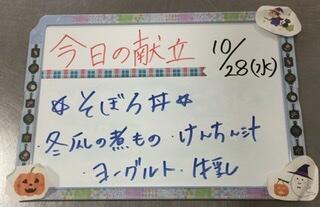 今日の献立
10/28(水)
☆そぼろ丼☆
・冬瓜の煮もの・けんちん汁
・ヨーグルト・牛乳